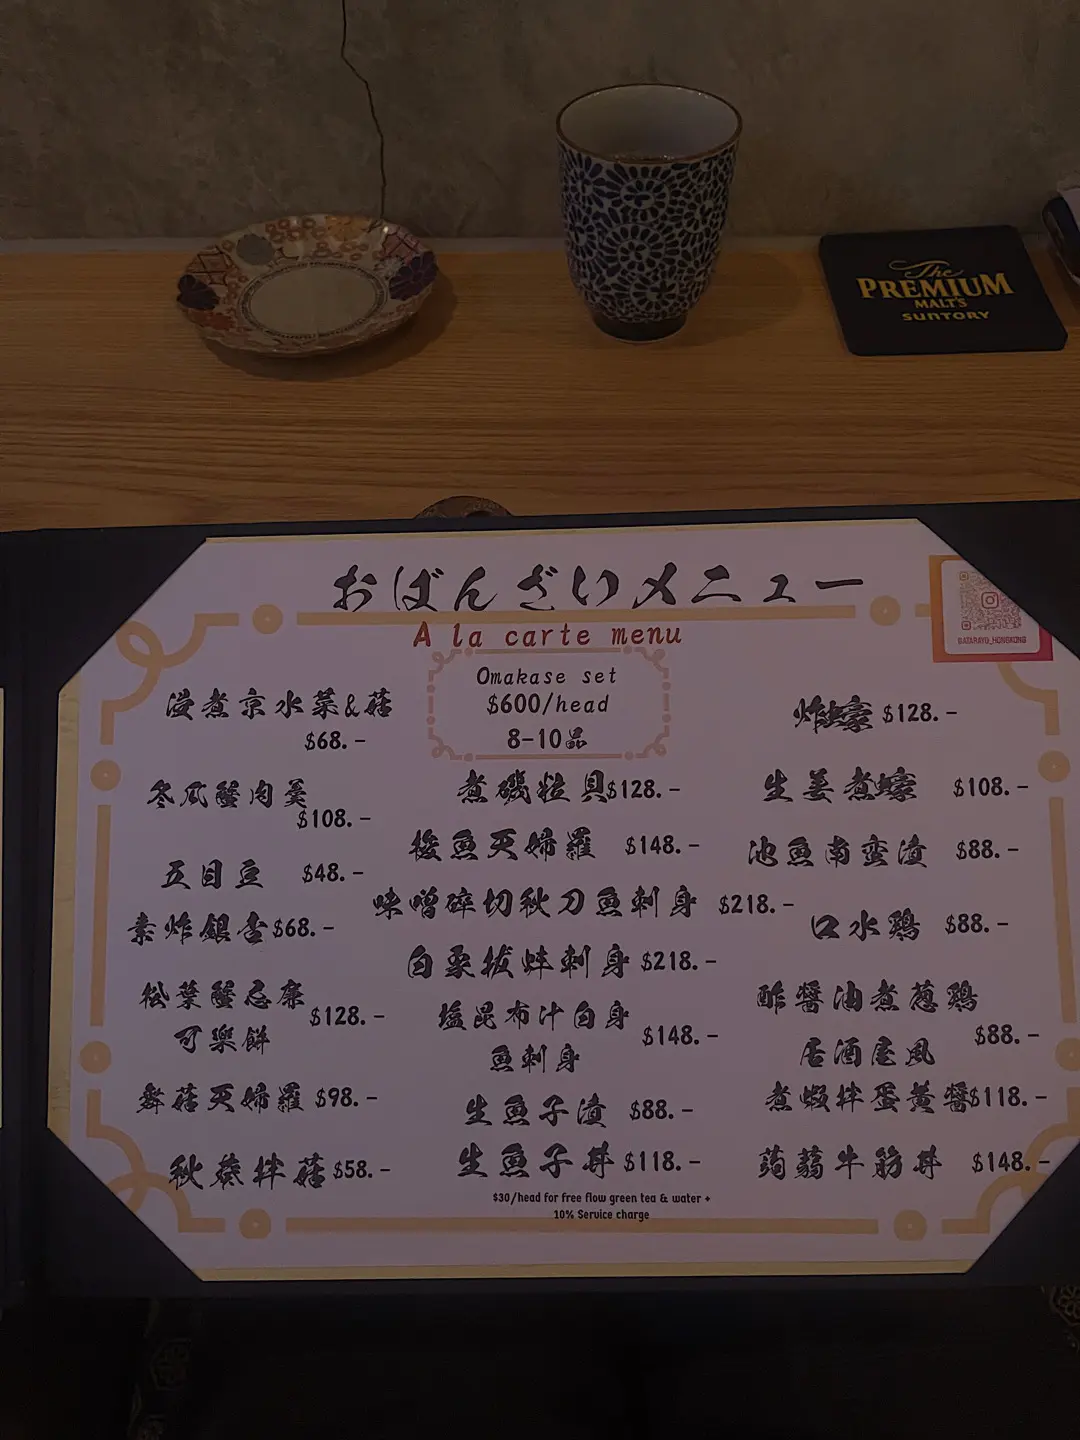 The
PREMIUM
MALT'S
SUNTORY
おばんざいメニュー
A la carte menu
@ATARAYO_HONGKONG
Omakase set
$600/head
8-10品
浸煮京水菜&菇
$68.-
冬瓜蟹肉羹
$108.-
五目豆 $48.-
素炸銀杏$68.-
松葉蟹忌廉
可樂餅
$128.-
舞菇天婦羅 $98.-
秋葵拌菇$58.-
煮磯粒貝$128.-
梭魚天婦羅 $148.-
味噌碎切秋刀魚刺身 $218.-
白象拔蚌刺身 $218.-
塩昆布汁白身
魚刺身
$148.-
生魚子漬 $88.-
生魚子丼 $118.-
炸蠔 $128.-
生姜煮蠔 $108.-
池魚南蛮漬 $88.-
口水鶏 $88.-
酢醤油煮葱鶏
居酒屋風
$88.-
煮蝦拌蛋黄醤$118.-
蒟蒻牛筋丼 $148.-
$30/head for free flow green tea & water +
10% Service charge